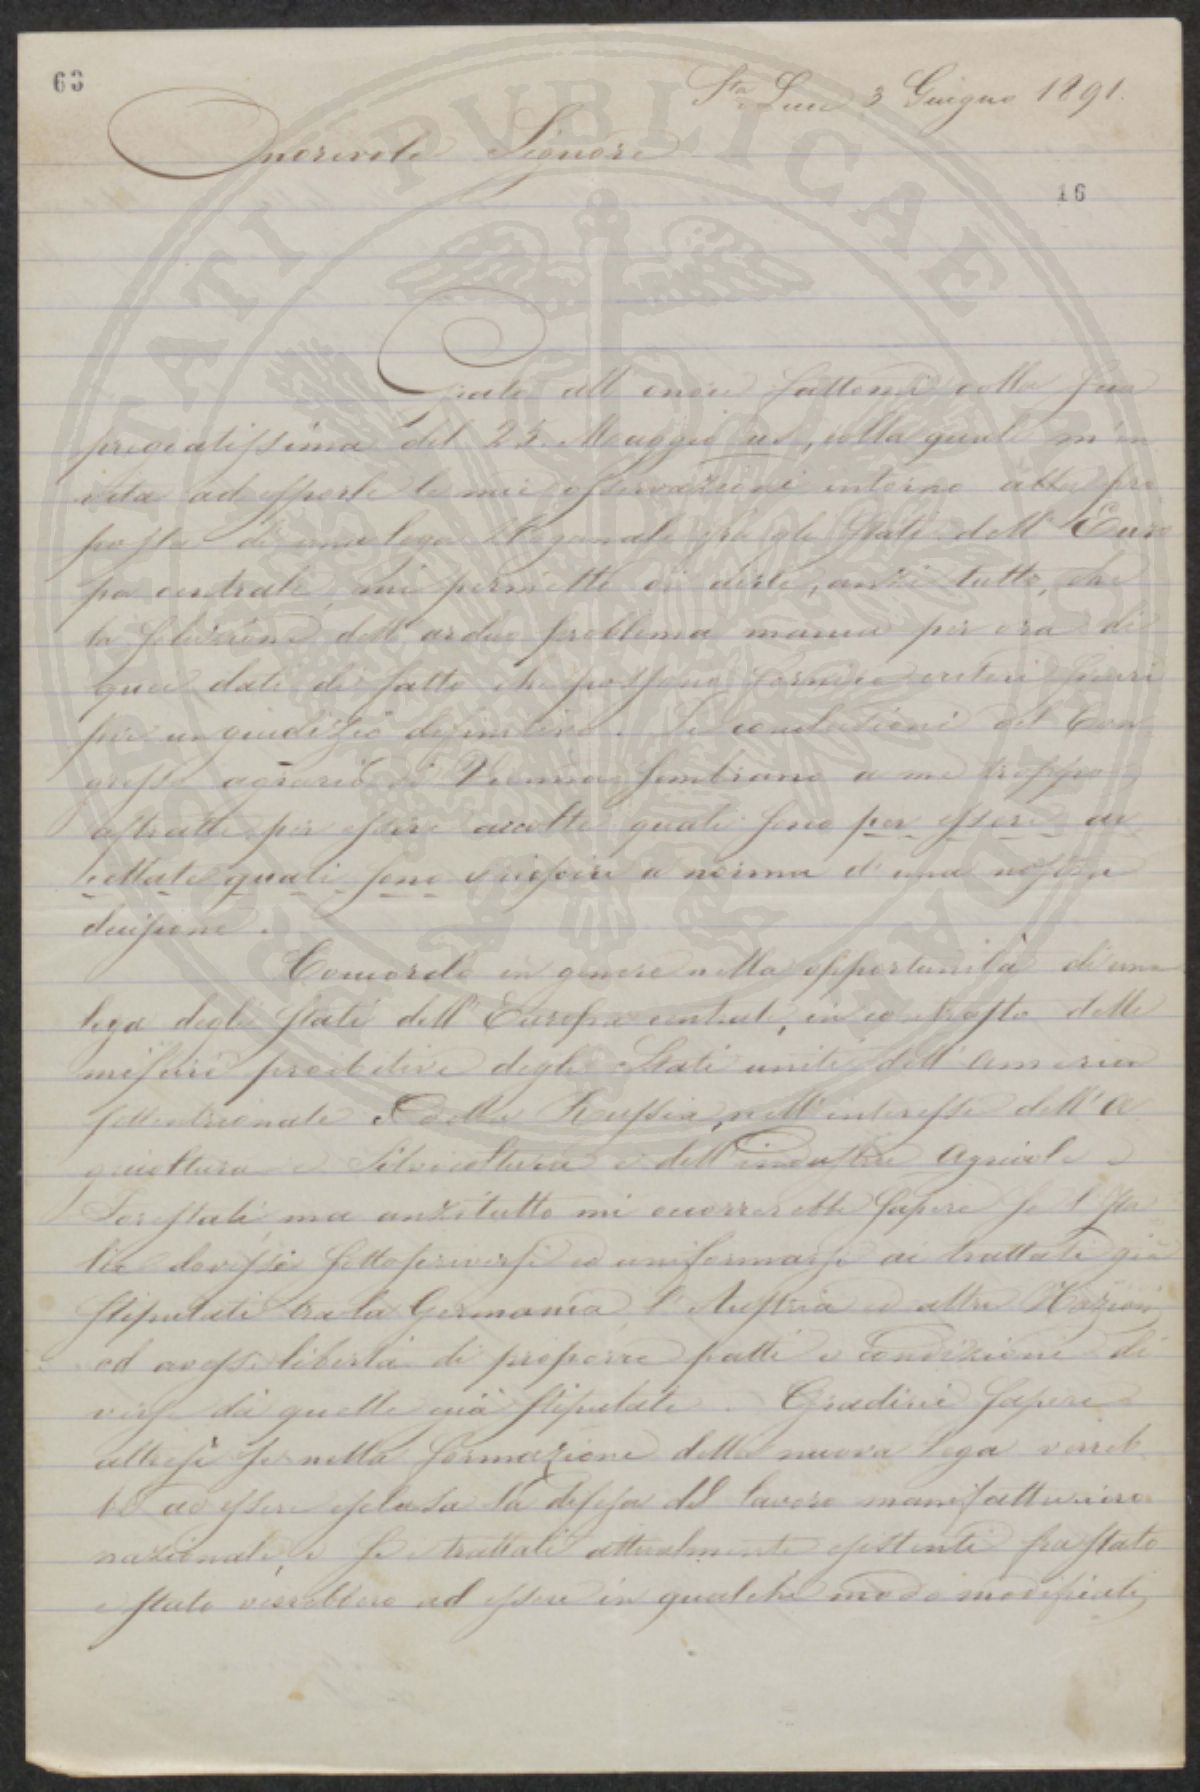 63
Sta Luce 3 Giugno 1891.
Onorevole Signore
16
Grato all' onore fattomi colla sua
pregiatissima del 25. Maggio us, colla quale m'in
vita ad esporle le mie osservazioni intorno alla pro
posta di una lega doganale fra gli Stati dell' Euro
pa centrale, mi permetto di dirle, anzi tutto, che
la soluzione dell' arduo problema manca per ora di
quei dati di fatto che possono fornire criteri sicuri
per un giudizio definitivo. Le conclusioni del Con
gresso agrario di Vienna sembrano a me troppo
astratte per essere accolte quali sono per essere ac
cettate quali sono e riescire a norma d' una nostra
decisione.
Concordo in genere nella opportunità di una
lega degli Stati dell' Europa centrale, in contrasto delle
misure proibitive degli Stati uniti dell' America
settentrionale e della Russia, nell' interesse dell' A
gricoltura e Silvicoltura e dell' industrie Agricole e
Forestali, ma anzitutto mi occorrerebbe sapere se l' Ita
lia dovesse sottoscriversi ed uniformarsi ai trattati già
stipulati tra la Germania, l' Austria ed altre Nazioni,
od avesse libertà di proporre patti e condizioni di
verse da quelle già stipulate. Gradirei sapere
altresì se nella formazione della nuova Lega verreb
be ad essere esclusa la difesa del lavoro manifatturiero
nazionale, e se i trattati attualmente esistenti fra stato
e stato verrebbero ad essere in qualche modo modificati,
PUBLICAE